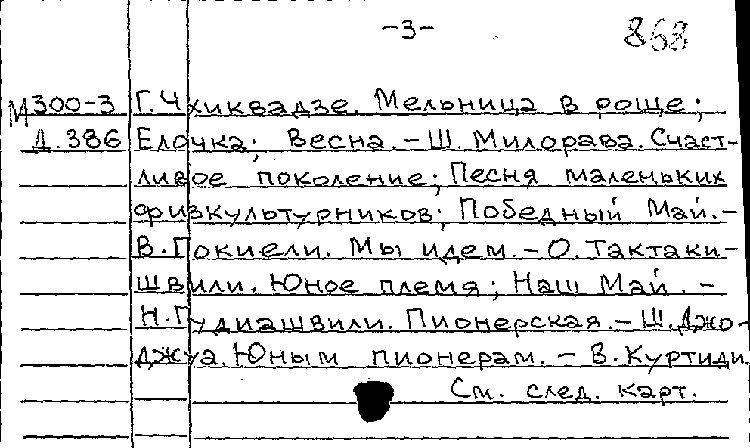 -3- 868
М300-3 Г.Чхиквадзе. Мельница в роще;
Д.386 Елочка; Весна.-Ш. Милорава. Счаст-
ливое поколение; Песня маленьких
физкультурников; Победный Май.-
В.Гокиели. Мы идем.-О.Тактаки-
швили. Юное племя; Наш Май. -
Н.Гудиашвили. Пионерская.-Ш.Джо-
джуа. Юным пионерам. - В.Куртиди.
См. след. карт.